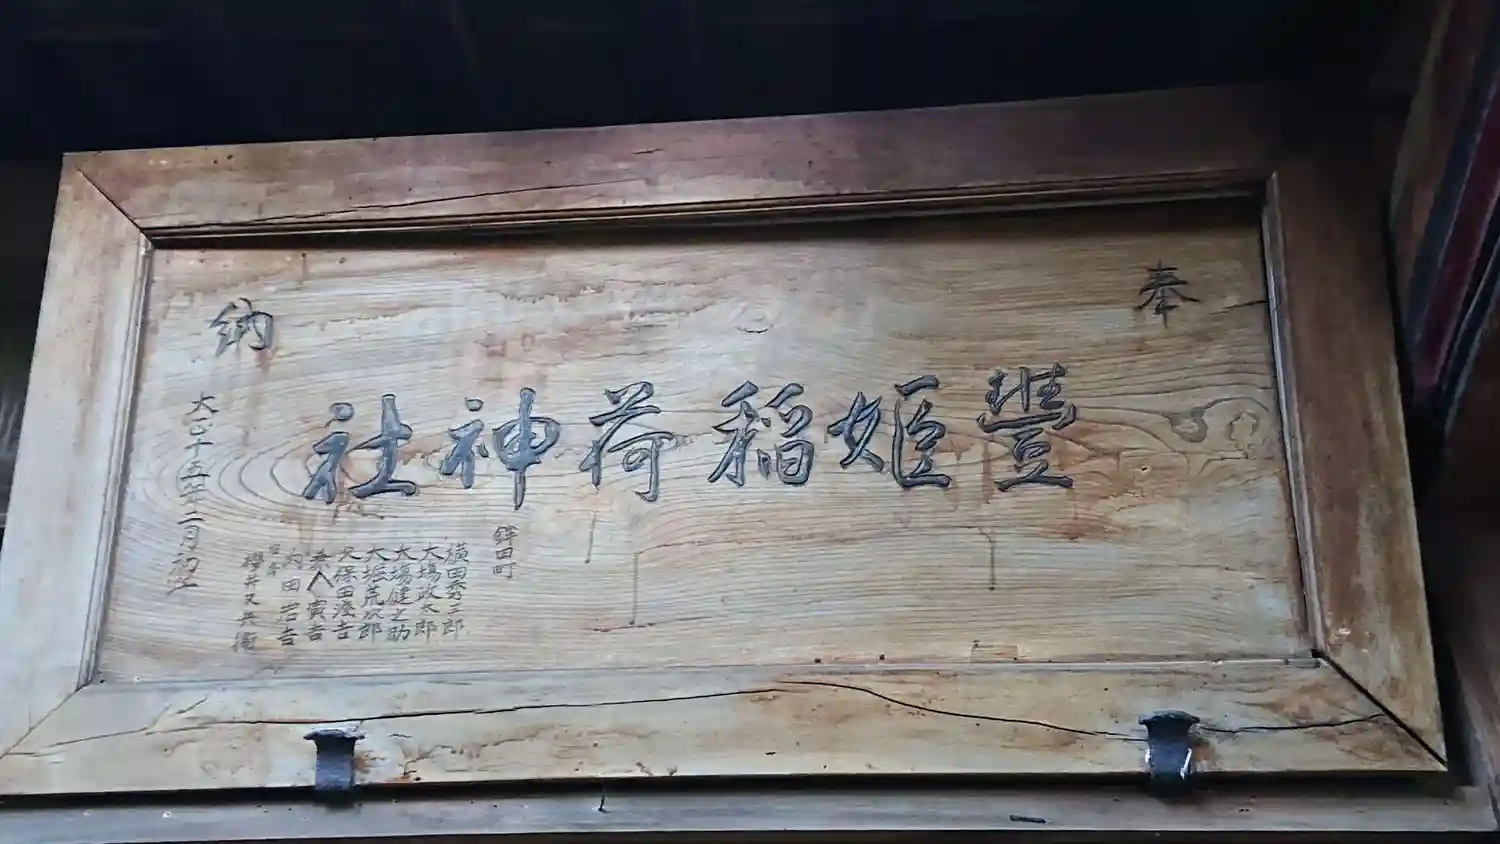 奉
豊姫稲荷神社
鉾田町
横田秀三郎
大場政太郎
大場健之助
大堀荒次郎
久保田淺吉
内田岩吉
櫻井又兵衛
納
大正十五年二月初午